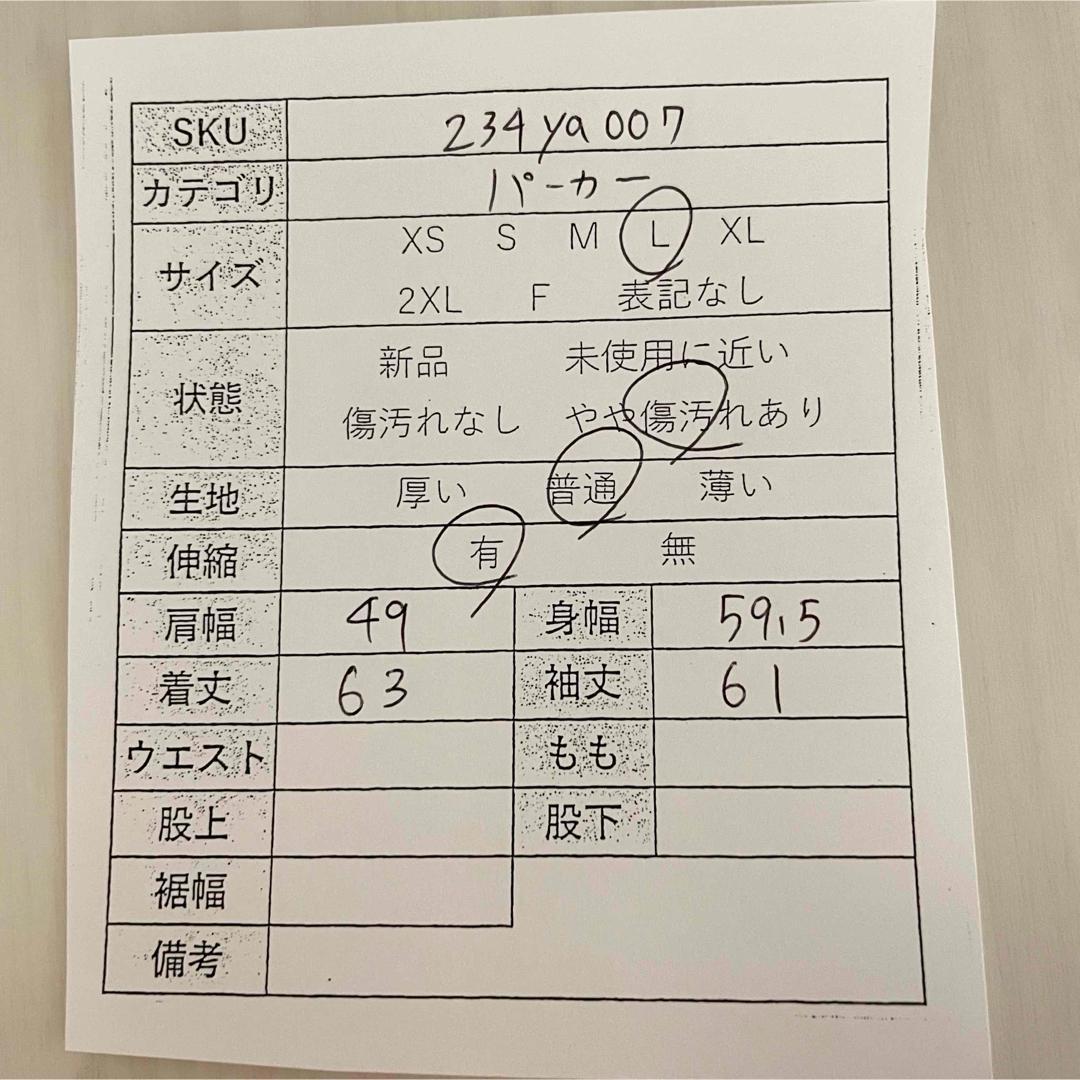 SKU 234ya007
カテゴリ パーカー
サイズ XS S M L XL
2XL F 表記なし
状態 新品 未使用に近い
傷汚れなし やや傷汚れあり
生地 厚い 普通 薄い
伸縮 有 無
肩幅 49 身幅 59.5
着丈 63 袖丈 61
ウエスト もも
股上 股下
裾幅
備考